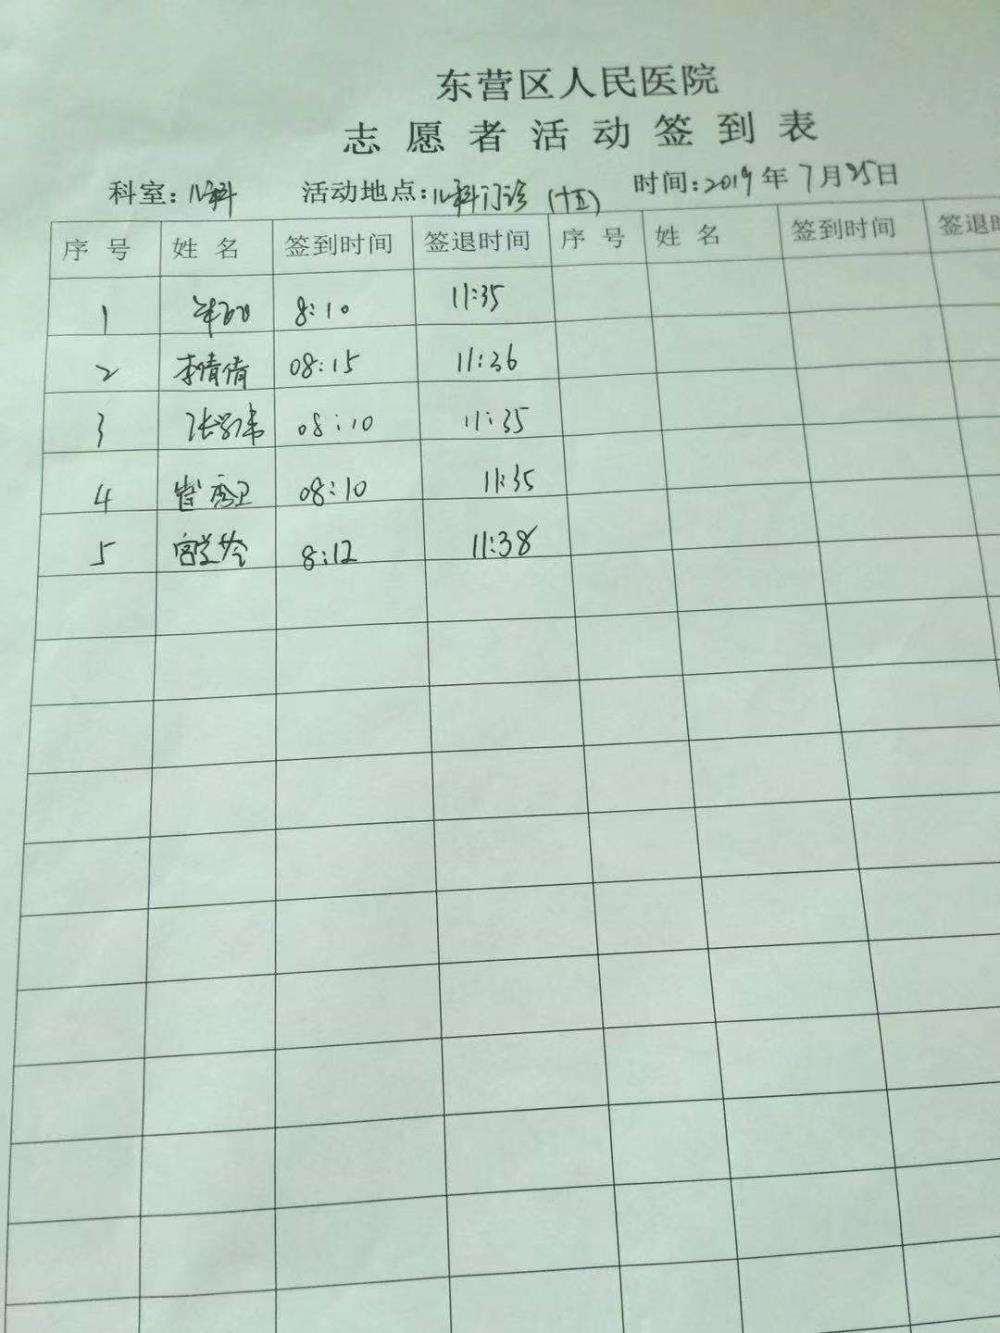 东营区人民医院
志愿者活动签到表
科室:儿科 活动地点:儿科门诊 时间:2019年7月25日
序号 姓名 签到时间 签退时间 序号 姓名 签到时间 签退
1 8:10 11:35
2 李倩倩 08:15 11:36
3 08:10 11:35
4 08:10 11:35
5 8:12 11:38